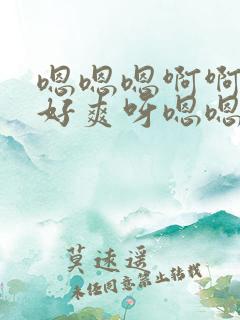 嗯嗯嗯啊啊
好爽呀嗯嗯
莫速遥
未经同意禁止转载